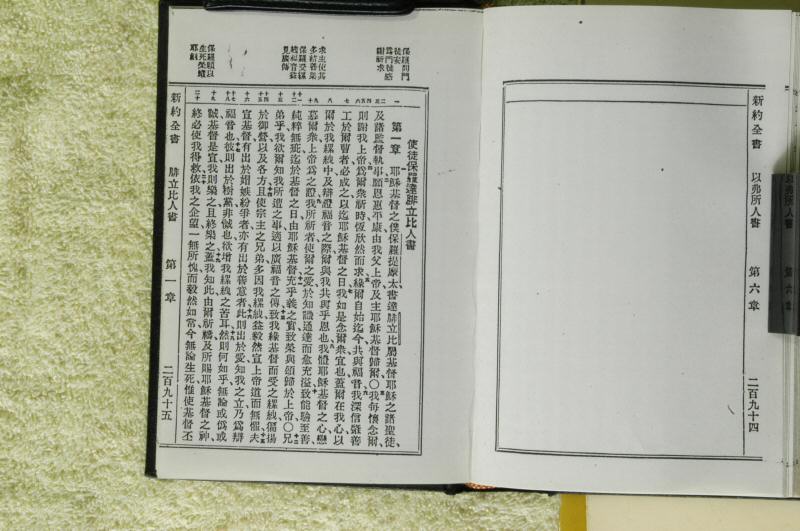 新約全書
以弗所人書
第六章
二百九十四
使徒保羅達腓立比人書
第一章
耶穌基督之僕保羅提摩太書達腓立比屬基督耶穌之諸聖徒
及諸監督執事願恩惠平康由我父上帝及主耶穌基督歸爾〇我每懷念爾
則謝我上帝爲爾衆祈時恆欣然而求緣爾自始迄今共與福音我深信肇善
工於爾曹者必成之以迄耶穌基督之日我如是念爾衆宜也蓋爾在我心以
爾於我縲絏中及辯證福音之際爾與我共與乎恩也我體耶穌基督之心戀
慕爾衆上帝爲之證我所祈者使爾之愛於知識通達而愈充溢致能驗至善
純粹無疵迄於基督之日由耶穌基督充乎義之實致榮與頌歸於上帝〇兄
弟乎我欲爾知我所遭之事適以廣福音之傳致我緣基督而受之縲絏徧揚
於御營以及各方且使宗主之兄弟多因我縲絏益毅然宣上帝道而無懼夫
宣基督有出於媢嫉紛爭者亦有出於善意者此則出於愛知我之立乃爲辯
福音也彼則出於樹黨非誠也欲增我縲絏之苦耳然則何如乎無論或僞或
誠基督是宣我則樂之且終樂之蓋我知此由爾祈禱及所賜耶穌基督之神
終必使我得救依我之企望一無所愧而毅然如常今無論生死惟使基督丕
新約全書
腓立比人書
第一章
二百九十五